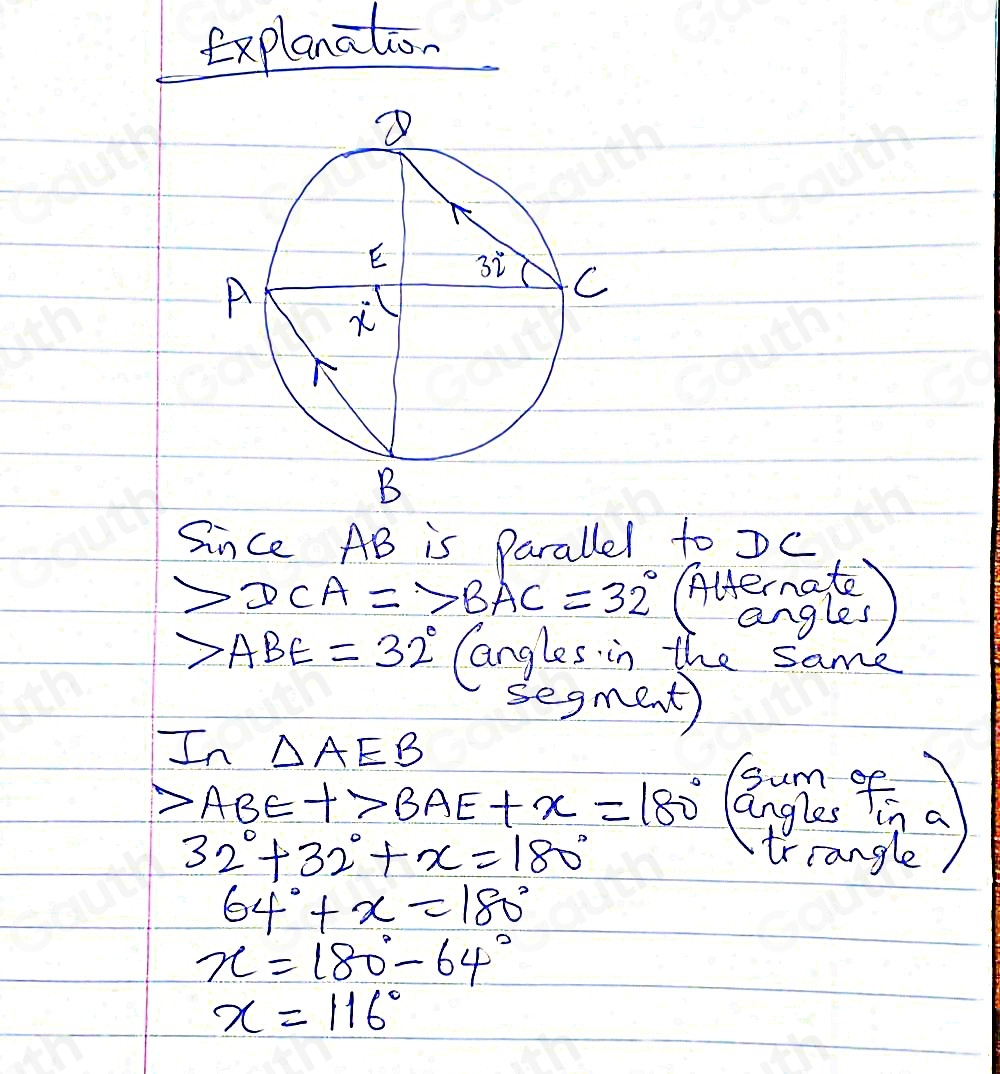 Explanation
D
E
32°
A
C
x°
B
Since AB is parallel to DC
>DCA = >BAC = 32° (Alternate angles)
>ABE = 32° (angles in the same
segment)
In △AEB
>ABE + >BAE + x = 180° (sum of angles in a triangle)
32° + 32° + x = 180°
64° + x = 180°
x = 180° - 64°
x = 116°
Gauth